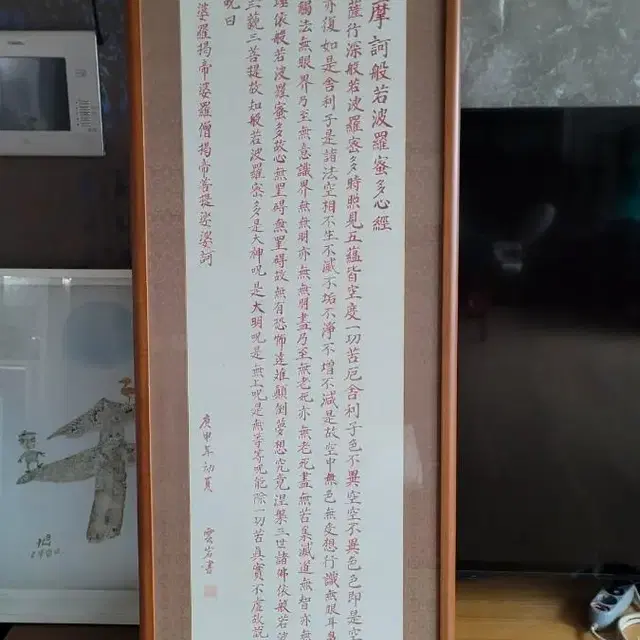 摩訶般若波羅蜜多心經
薩行深般若波羅蜜多時照見五蘊皆空度一切苦厄舍利子色不異空空不異色色即是空
亦復如是舍利子是諸法空相不生不滅不垢不淨不增不減是故空中無色無受想行識無眼耳
觸法無眼界乃至無意識界無無明亦無無明盡乃至無老死亦無老死盡無苦集滅道無智亦無
埵依般若波羅蜜多故心無罣碍無罣碍故無有恐怖遠離顛倒夢想究竟涅槃三世諸佛依般若波
三藐三菩提故知般若波羅蜜多是大神呪是大明呪是無上呪是無等等呪能除一切苦真實不虛故說
呪曰
婆羅揭帝婆羅僧揭帝菩提娑婆訶
庚申年初夏 雲岩書